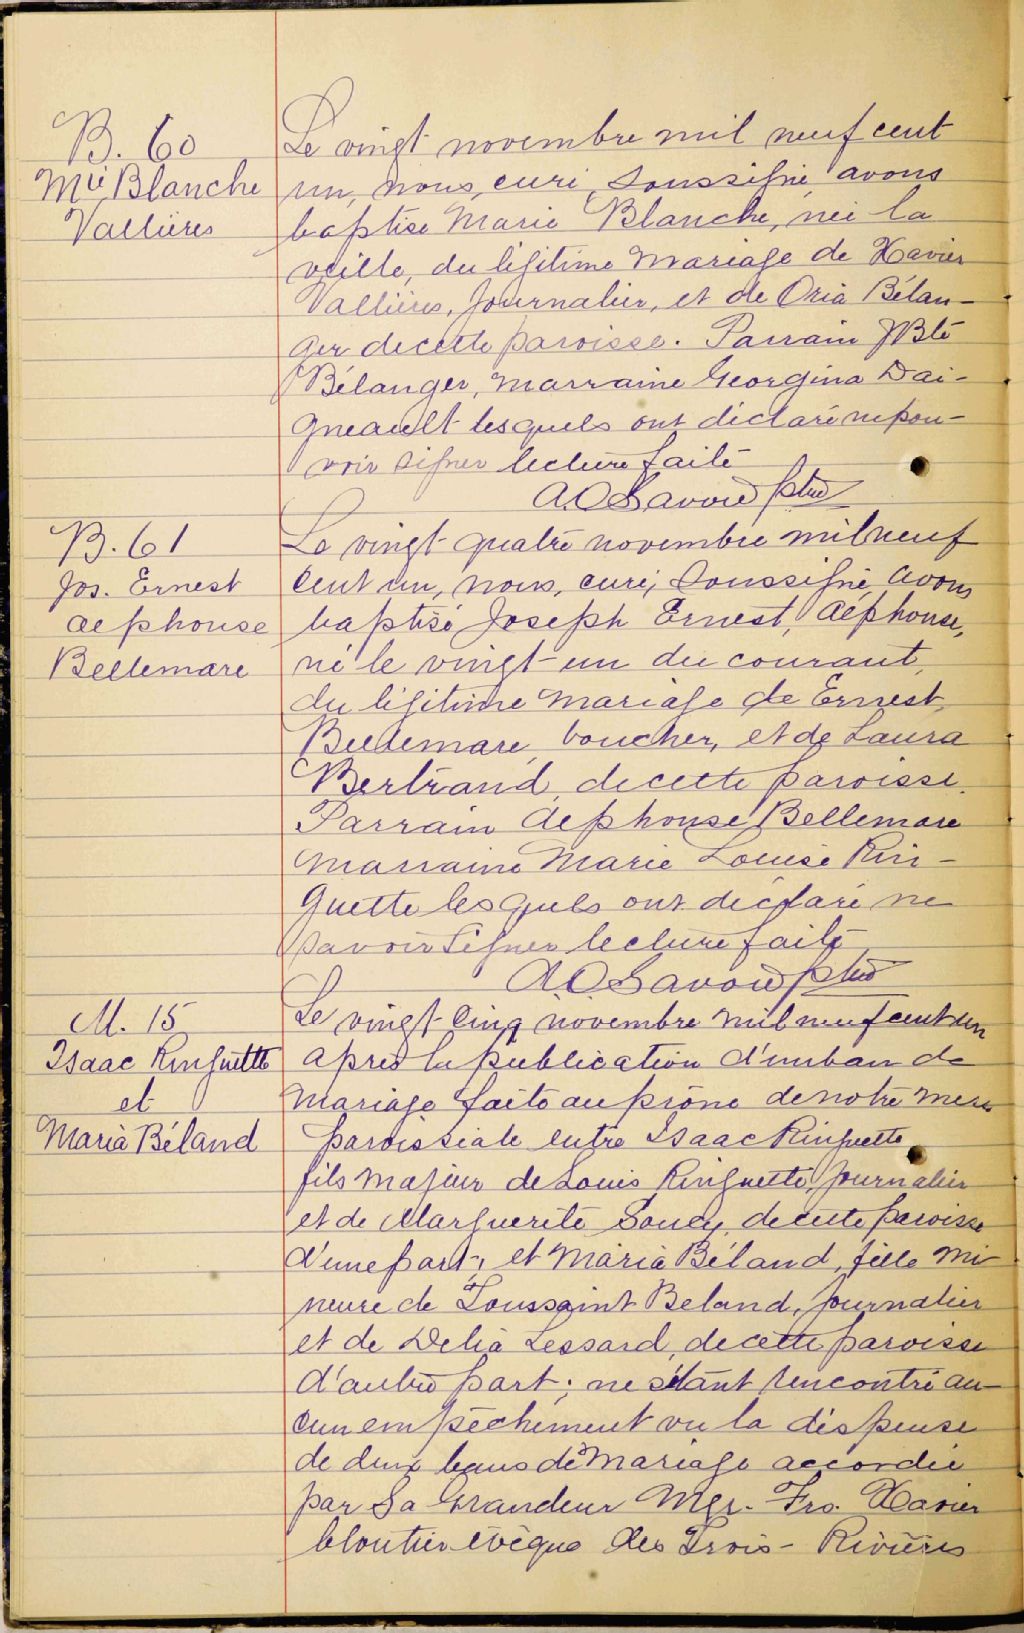 B. 60
Mie Blanche
Vallières
Le vingt novembre mil neuf cent
un, nous, curé, soussigné, avons
baptisé Marie Blanche, née la
veille, du légitime mariage de Xavier
Vallières, journalier, et de Oria Bélan-
ger de cette paroisse. Parrain JBte
Bélanger, marraine Georgina Dai-
gneault lesquels ont déclaré ne pou-
voir signer lecture faite
A.O Savoie ptre
B. 61
Jos. Ernest
Alphonse
Bellemare
Le vingt quatre novembre mil neuf
cent un, nous, curé, soussigné, avons
baptisé Joseph Ernest, Alphonse,
né le vingt-un du courant,
du légitime mariage de Ernest
Bellemare, boucher, et de Laura
Bertrand, de cette paroisse.
Parrain Alphonse Bellemare
marraine Marie Louise Rin-
guette lesquels ont déclaré ne
savoir signer lecture faite
A.O Savoie ptre
M. 15
Isaac Ringuette
et
Maria Béland
Le vingt cinq novembre mil neuf cent un
après la publication d'un ban de
mariage faite au prône de notre messe
paroissiale entre Isaac Ringuette
fils majeur de Louis Ringuette, journalier
et de Marguerite Soucy, de cette paroisse
d'une part; et Maria Béland, fille mi-
neure de Toussaint Beland, journalier
et de Delia Lessard, de cette paroisse
d'autre part; ne s'étant rencontré au-
cun empêchement vu la dispense
de deux bans de mariage accordée
par Sa Grandeur Mgr. Frs. Xavier
Cloutier évêque des Trois-Rivières